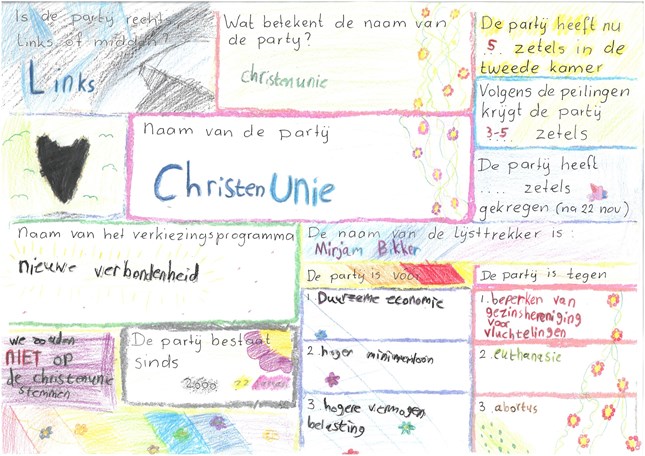 Is de partij rechts,
Links of midden?
Links
Wat betekent de naam van
de party?
christenunie
De partij heeft nu
5 zetels in de
tweede kamer
Volgens de peilingen
krijgt de partij
3-5 zetels
Naam van de partij
ChristenUnie
De partij heeft
.... zetels
gekregen (na 22 nov)
Naam van het verkiezingsprogramma
nieuwe verbondenheid
De naam van de lijsttrekker is:
Mirjam Bikker
De party is voor
1. Duurzame economie
2. hoger minimumloon
3. hogere vermogen
belasting
De party is tegen
1. beperken van
gezinshereniging
voor
vluchtelingen
2. euthanasie
3. abortus
we zouden
NIET op
de christenunie
stemmen
De partij bestaat
sinds
2000